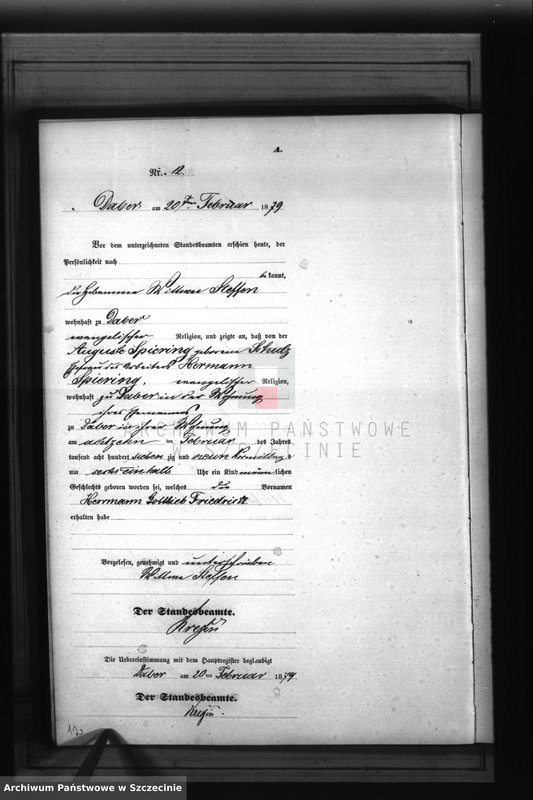 A.
Nr. 12
Daber am 20ten Februar 1879
Vor dem unterzeichneten Standesbeamten erschien heute, der
Persönlichkeit nach
bekannt,
die Hebamme Wittwe Steffen
wohnhaft zu Daber
evangelischer Religion, und zeigte an, daß von der
Auguste Spiering geborene Schulz
Ehefrau des Arbeiters Hermann
Spiering, evangelischer Religion,
wohnhaft zu Daber in der Wohnung
ihres Ehemannes
zu Daber in ihrer Wohnung
am achtzehn ten Februar des Jahres
tausend acht hundert sieben zig und neun Vormittags
um sechs einhalb Uhr ein Kind männlichen
Geschlechts geboren worden sei, welches die Vornamen
Herrmann Gottlieb Friedrich
erhalten habe
Vorgelesen, genehmigt und unterschrieben
Wittwe Steffen
Der Standesbeamte.
Die Uebereinstimmung mit dem Hauptregister beglaubigt
Daber am 20ten Februar 1879.
Der Standesbeamte.
ARCHIWUM PAŃSTWOWE
W SZCZECINIE
Archiwum Państwowe w Szczecinie